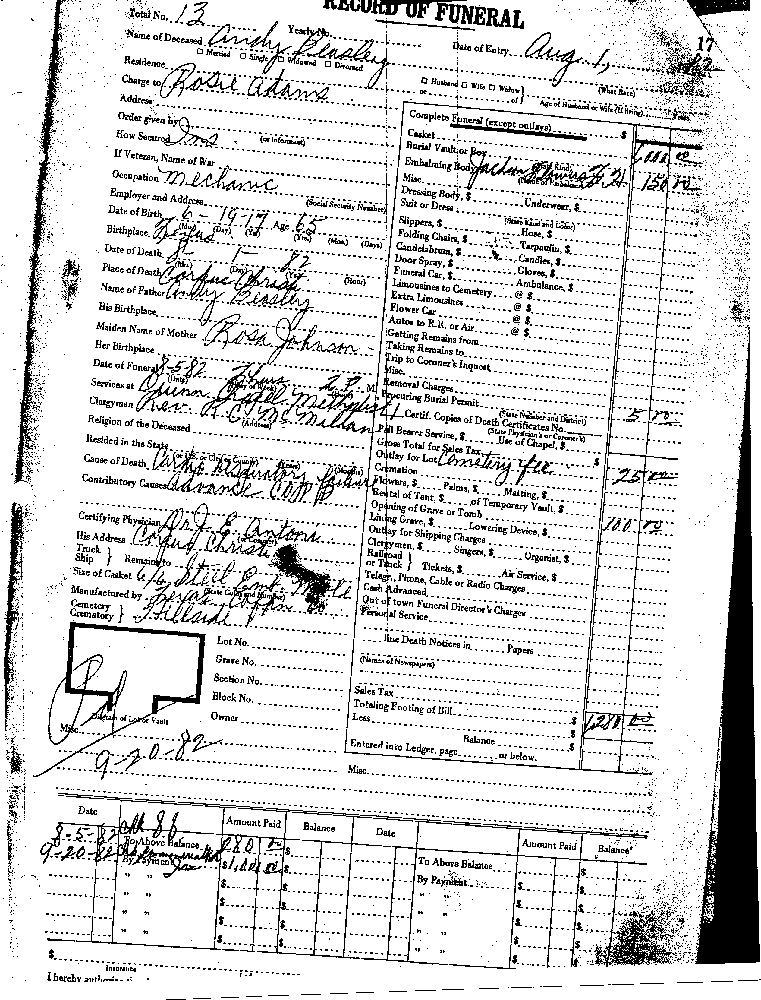 RECORD OF FUNERAL
Total No. 13 Yearly No.
17
Name of Deceased Andy Beasley Date of Entry Aug. 1, 82
☐ Married ☐ Single ☐ Widowed ☐ Divorced
Residence
☐ Husband ☐ Wife ☐ Widow
Charge to Rosie Adams or of Age of Husband or Wife (if living)
Address
Order given by
How Secured Ins (or Informant)
If Veteran, Name of War
Occupation Mechanic
Employer and Address (Social Security Number)
Date of Birth 6-19-17 Age 65
(Mo.) (Day) (Yr.) (Yrs.) (Mos.) (Days)
Birthplace Texas
Date of Death 8-1-82
(Day) (Hour)
Place of Death Corpus Christi
Name of Father Andy Beasley
His Birthplace
Maiden Name of Mother Rosa Johnson
Her Birthplace
Date of Funeral 8-5-82 2 P. M.
Services at Chapel Methodist
Clergyman Rev. R. C. McMillan
Religion of the Deceased (Address)
Resided in the State
Cause of Death
Contributory Causes Advance
Certifying Physician Dr. J. E. Antoni
His Address Corpus Christi
Truck Ship } Remains to
Size of Casket 6/6 Steel
Manufactured by Texas Coffin Co
Cemetery Crematory } Hillside
Lot No.
Grave No.
Section No.
Block No.
Owner
Diagram of Lot or Vault
Pd
Misc.
9-20-82
Complete Funeral (except outlays) $
Casket
Burial Vault or Box
Embalming Body 150 00
Misc.
Dressing Body, $ Underwear, $
Suit or Dress
(State Kind and Color)
Slippers, $ Hose, $
Folding Chairs, $ Tarpaulin, $
Candelabrum, $ Candles, $
Door Spray, $ Gloves, $
Funeral Car, $ Ambulance, $
Limousines to Cemetery @ $
Extra Limousines @ $
Flower Car @ $
Autos to R.R. or Air @ $
Getting Remains from
Taking Remains to
Trip to Coroner's Inquest
Misc.
Removal Charges
Procuring Burial Permit
(State Number and District)
Certif. Copies of Death Certificates No. 5 00
(State Physician's or Coroner's)
Pall Bearer Service, $ Use of Chapel, $
Gross Total for Sales Tax $
Outlay for Lot Cemetery fee 25 00
Cremation
Flowers, $ Palms, $ Matting, $
Rental of Tent, $ of Temporary Vault, $
Opening of Grave or Tomb 100 00
Lining Grave, $ Lowering Device, $
Outlay for Shipping Charges
Clergymen, $ Singers, $ Organist, $
Railroad or Truck } Tickets, $ Air Service, $
Telegr., Phone, Cable or Radio Charges
Cash Advanced
Out of town Funeral Director's Charges
Personal Service
line Death Notices in Papers
(Names of Newspapers)
Sales Tax
Totaling Footing of Bill $ 1280 00
Less $
Balance $
Entered into Ledger, page or below.
Misc.
Date Amount Paid Balance Date Amount Paid Balance
8-5-82 To Above Balance 280 00 $ To Above Balance $
9-20-82 By Payment $ 1,000 00 $ By Payment $
" " $ " " $
" " $ " " $
" " $ " " $
" " $ " " $
$
Insurance
I hereby